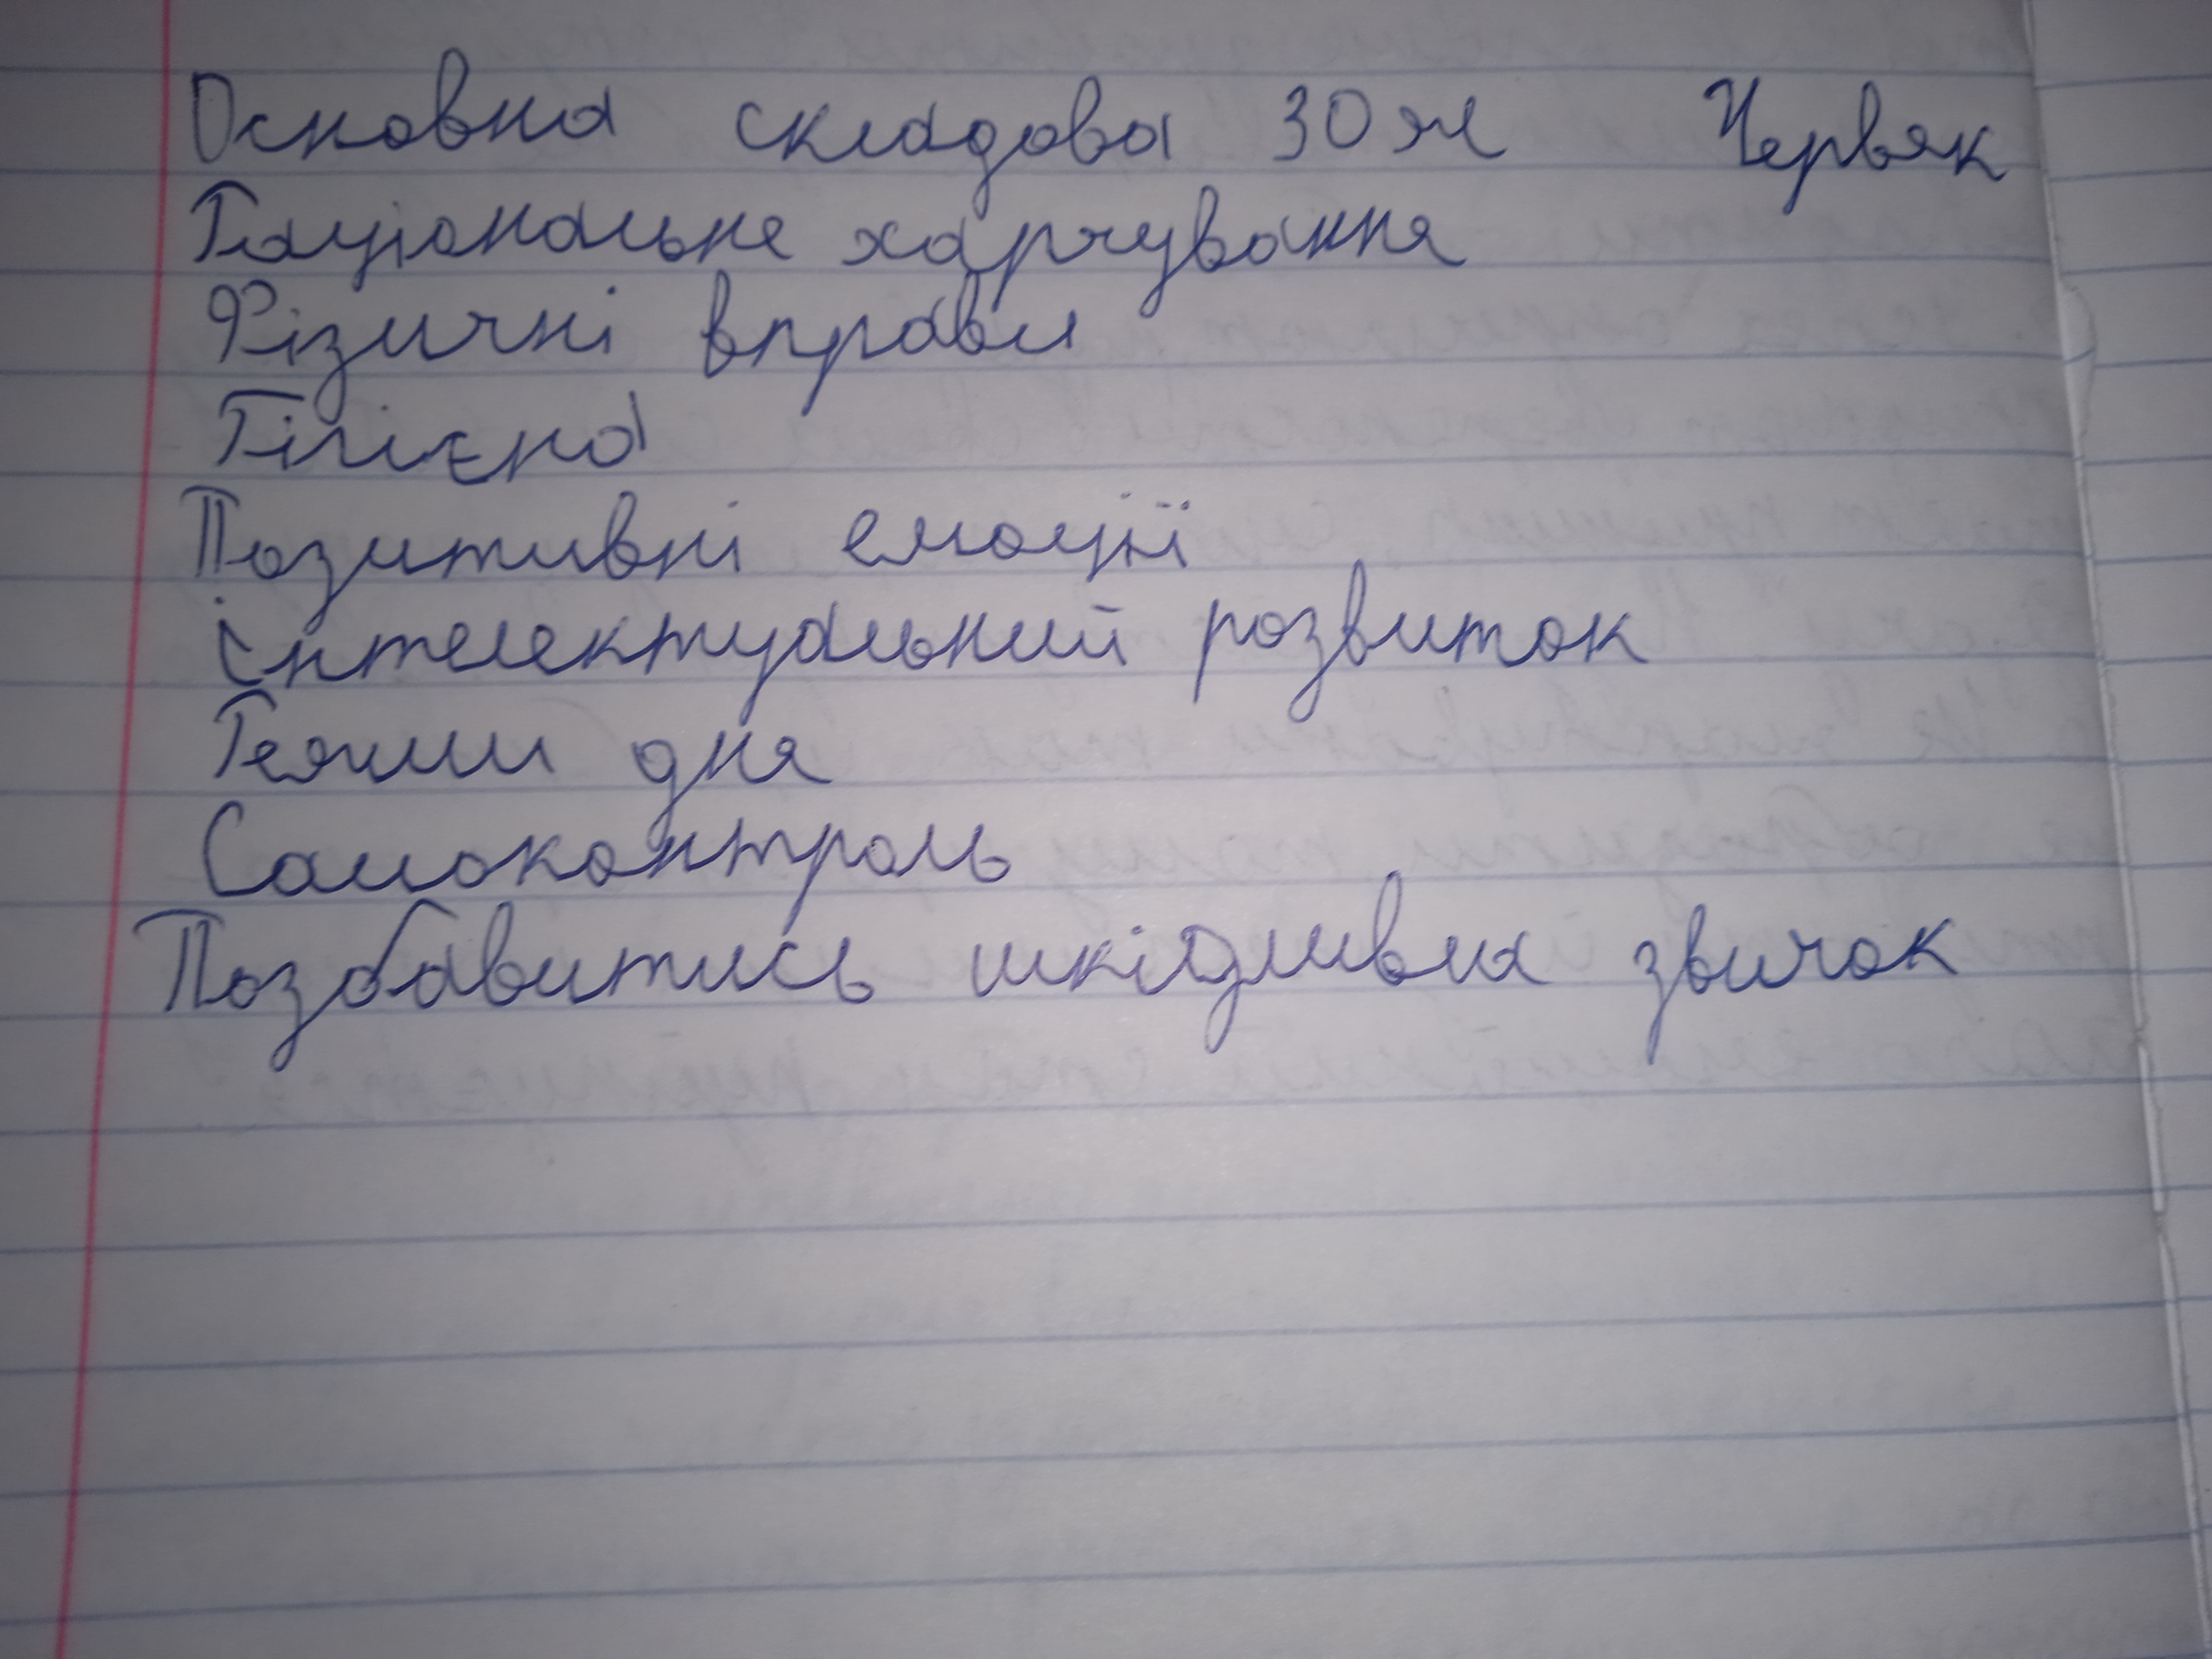 Основна складова ЗОЖ Червяк
Раціональне харчування
Фізичні вправи
Гігієна
Позитивні емоції
інтелектуальний розвиток
Режим дня
Самоконтроль
Позбавитись шкідливих звичок